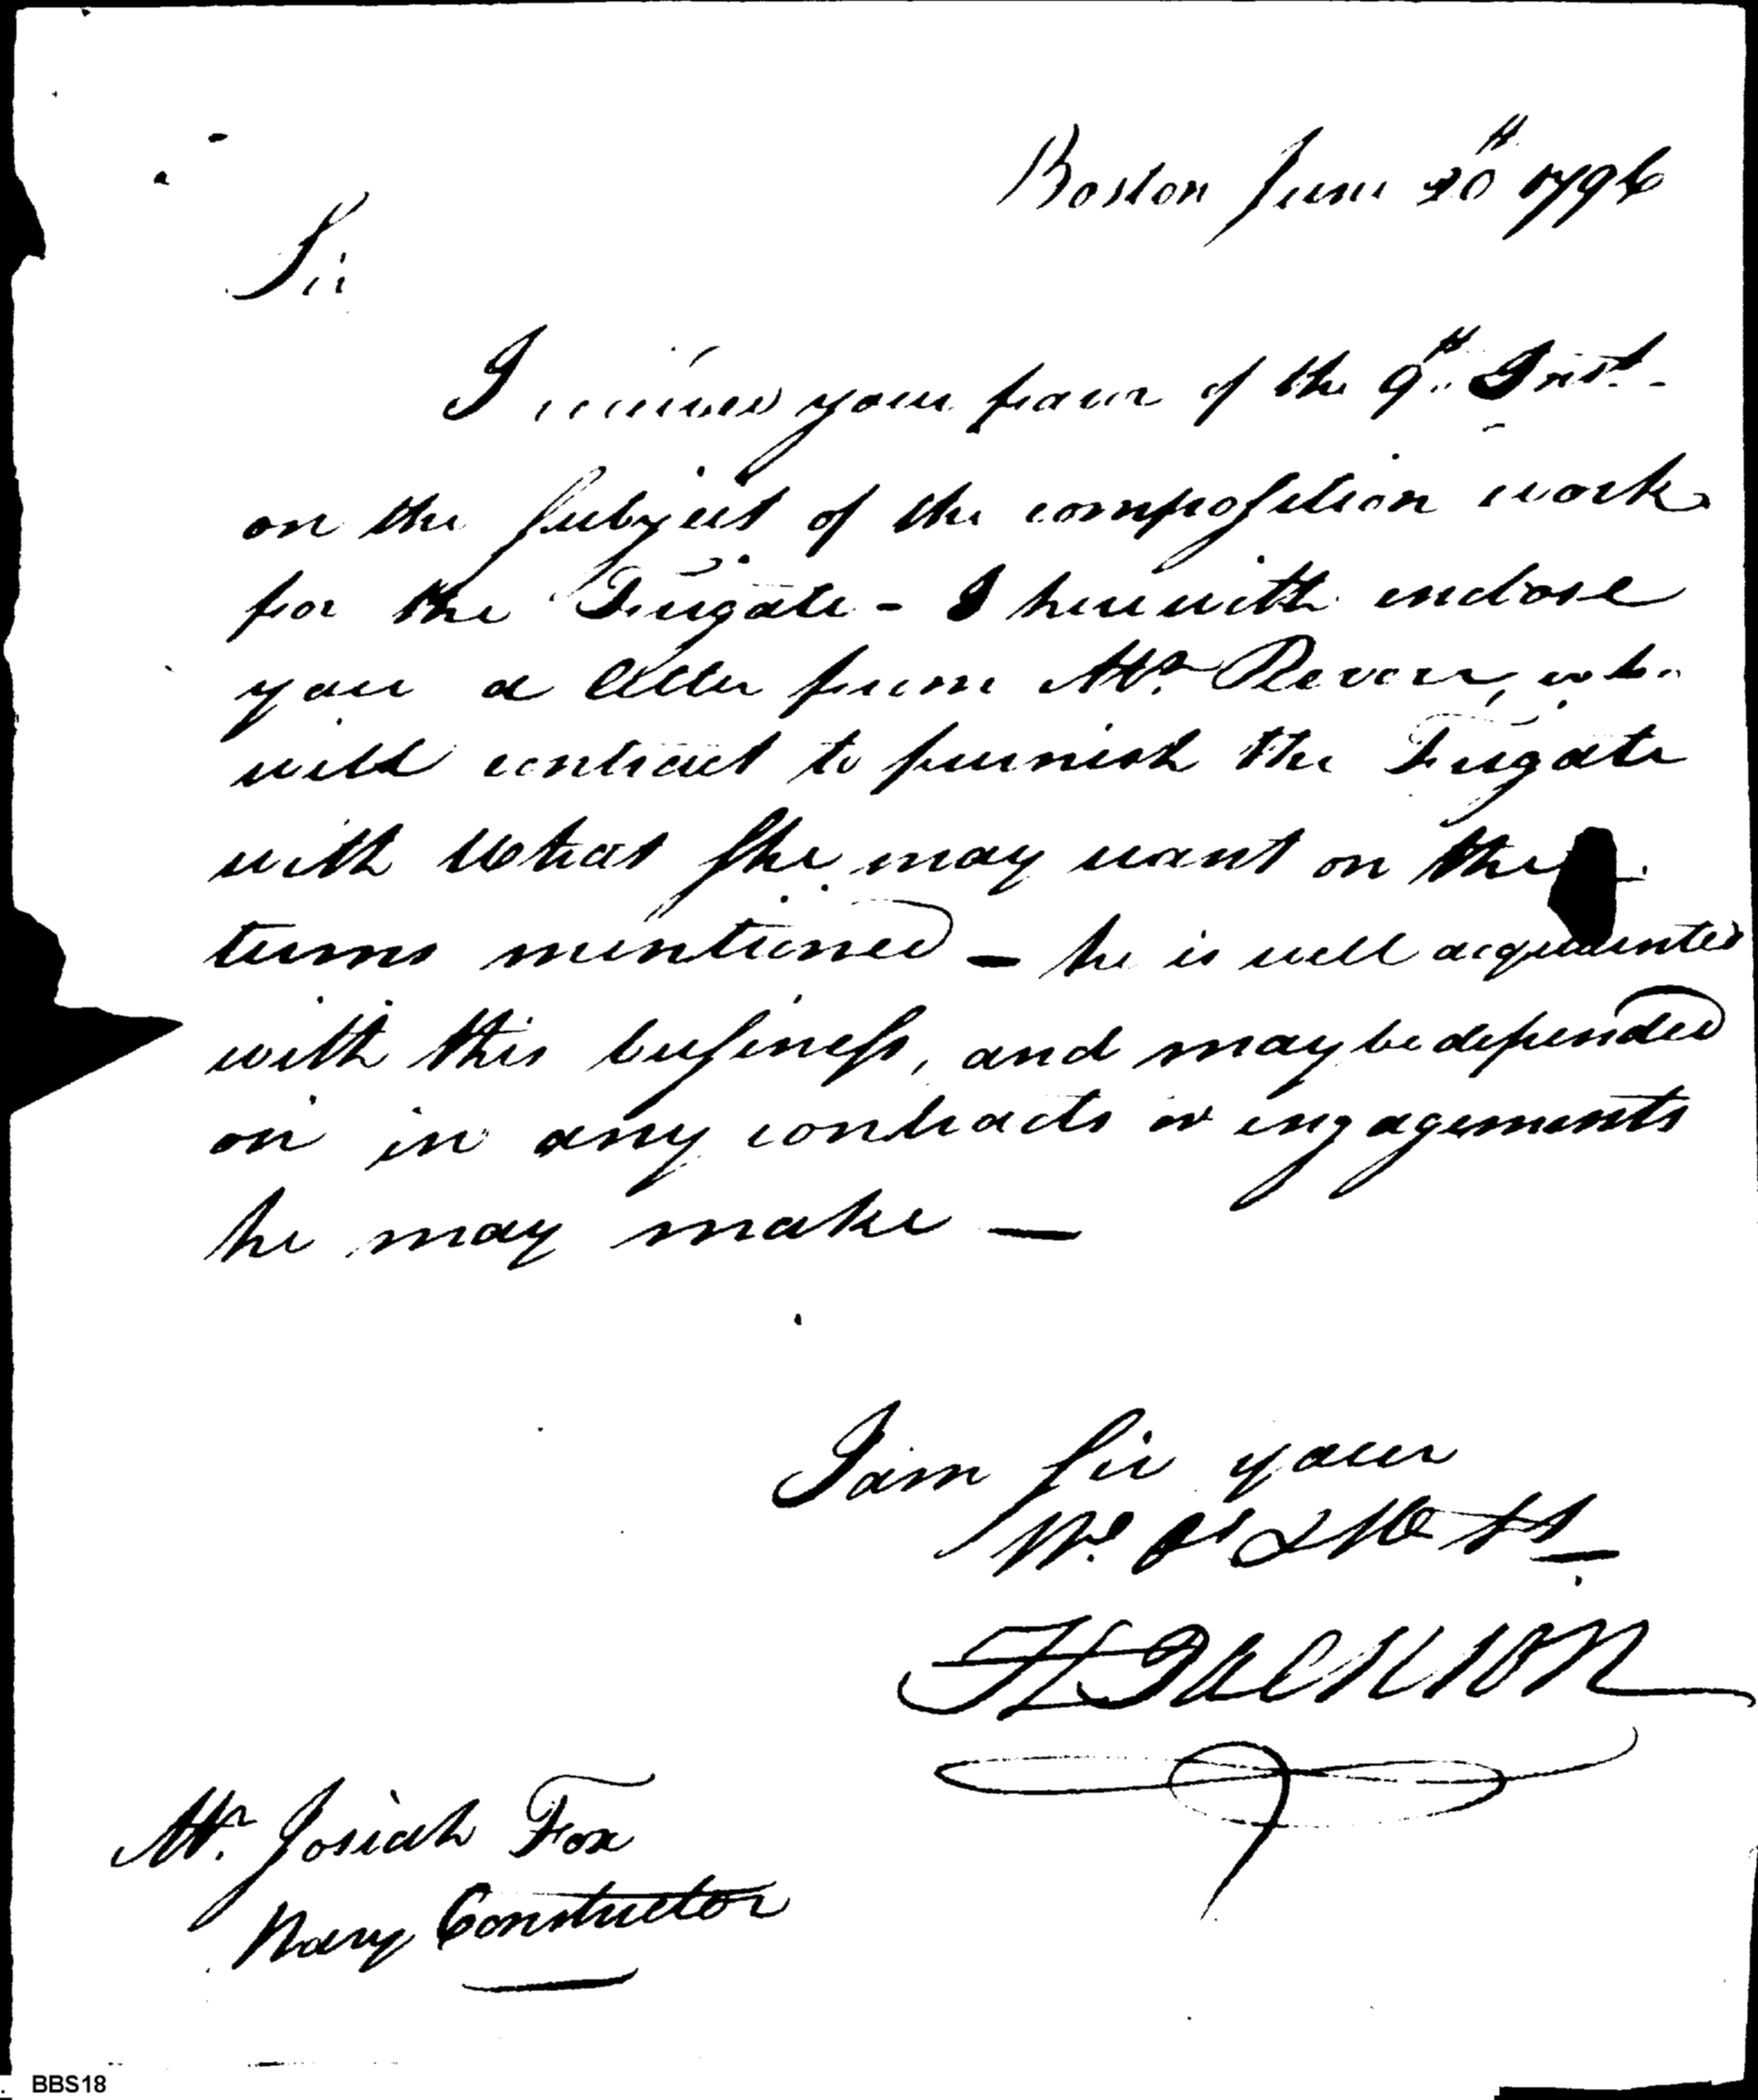 Boston June 20th 1796
Sir
I received your favor of the 9th Inst.
on the subject of the composition work
for the Frigate - I herewith enclose
you a letter from Mr. Revere, who
will contract to furnish the Frigate
with what she may want on the
terms mentioned - he is well acquainted
with this business, and may be depended
on in any contracts or engagements
he may make -
I am sir your
H Jackson
Mr. Josiah Fox
Navy Constructor
BBS18